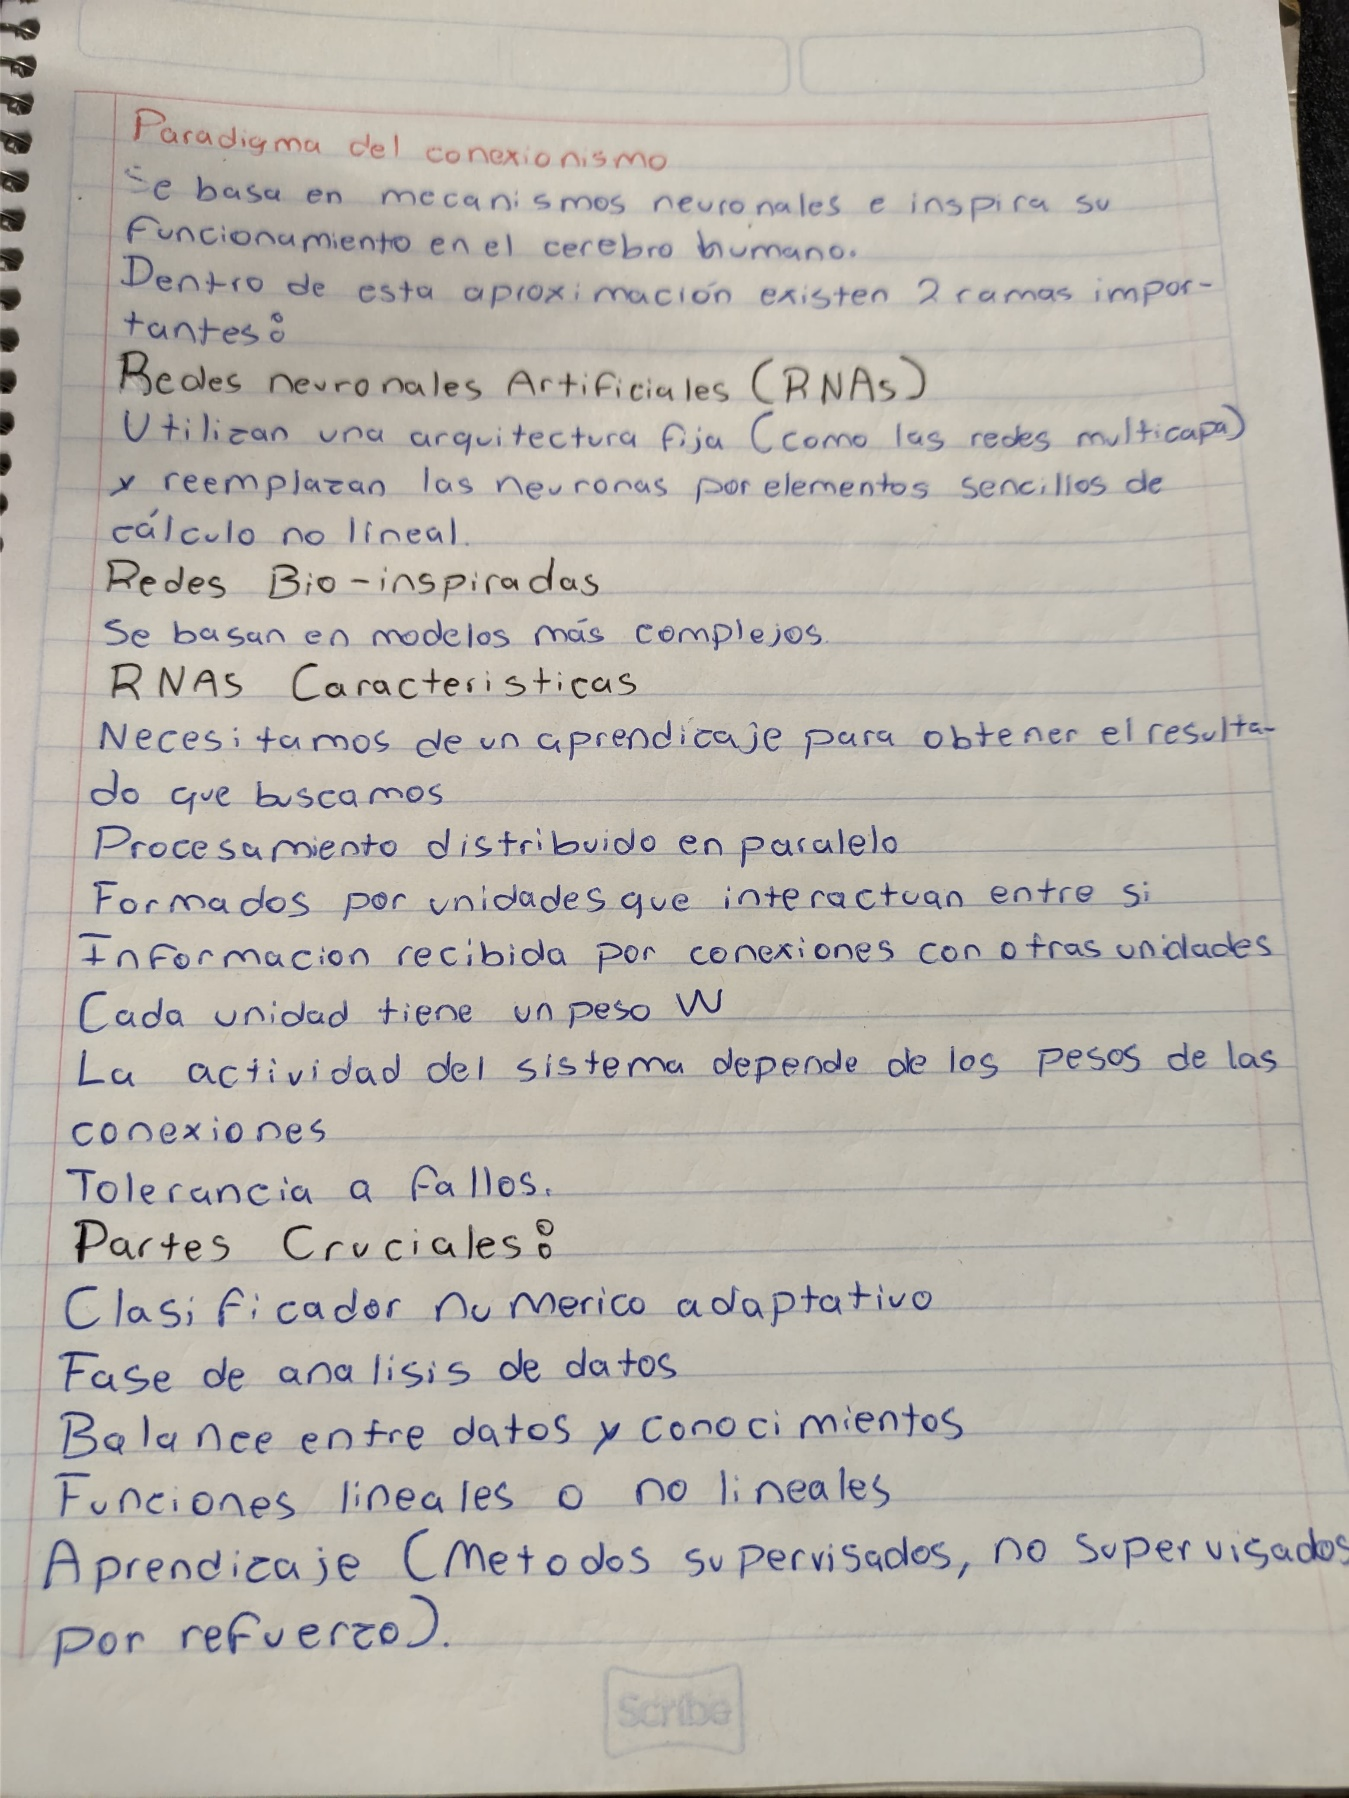 Paradigma del conexionismo
Se basa en mecanismos neuronales e inspira su
funcionamiento en el cerebro humano.
Dentro de esta aproximación existen 2 ramas impor-
tantes:
Redes neuronales Artificiales (RNAs)
Utilizan una arquitectura fija (como las redes multicapa)
y reemplazan las neuronas por elementos sencillos de
cálculo no lineal.
Redes Bio-inspiradas
Se basan en modelos más complejos.
RNAs Caracteristicas
Necesitamos de un aprendizaje para obtener el resulta-
do que buscamos
Procesamiento distribuido en paralelo
Formados por unidades que interactuan entre si
Informacion recibida por conexiones con otras unidades
Cada unidad tiene un peso W
La actividad del sistema depende de los pesos de las
conexiones
Tolerancia a fallos.
Partes Cruciales:
Clasificador numerico adaptativo
Fase de analisis de datos
Balance entre datos y conocimientos
Funciones lineales o no lineales
Aprendizaje (Metodos supervisados, no supervisados
por refuerzo).
Scribe